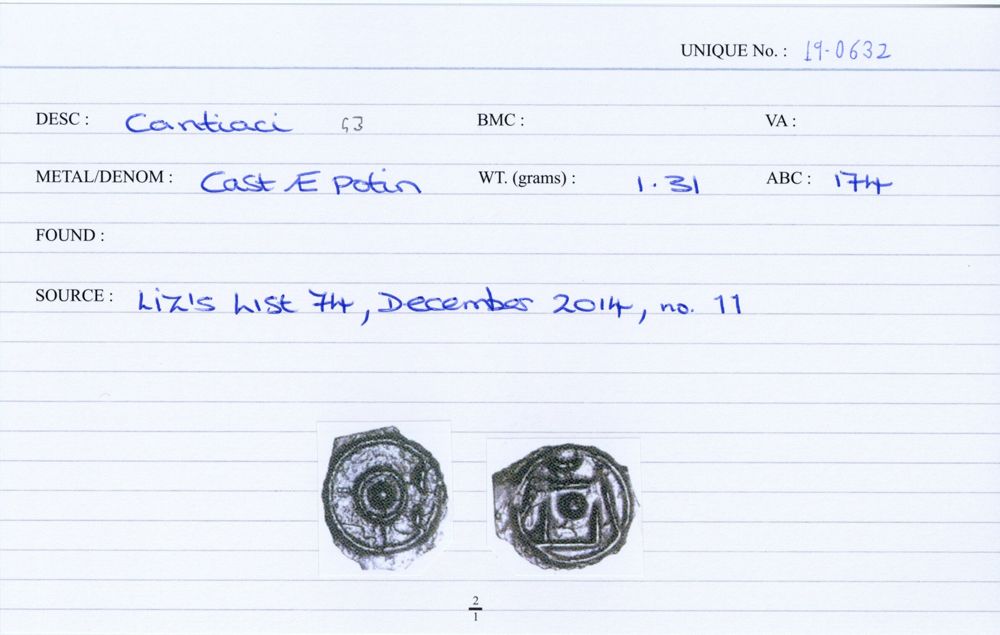 UNIQUE No. : 19-0632
DESC : Cantiaci G3 BMC : VA :
METAL/DENOM : Cast Æ Potin WT. (grams) : 1.31 ABC : 174
FOUND :
SOURCE : Liz's List 74, December 2014, no. 11
2
1